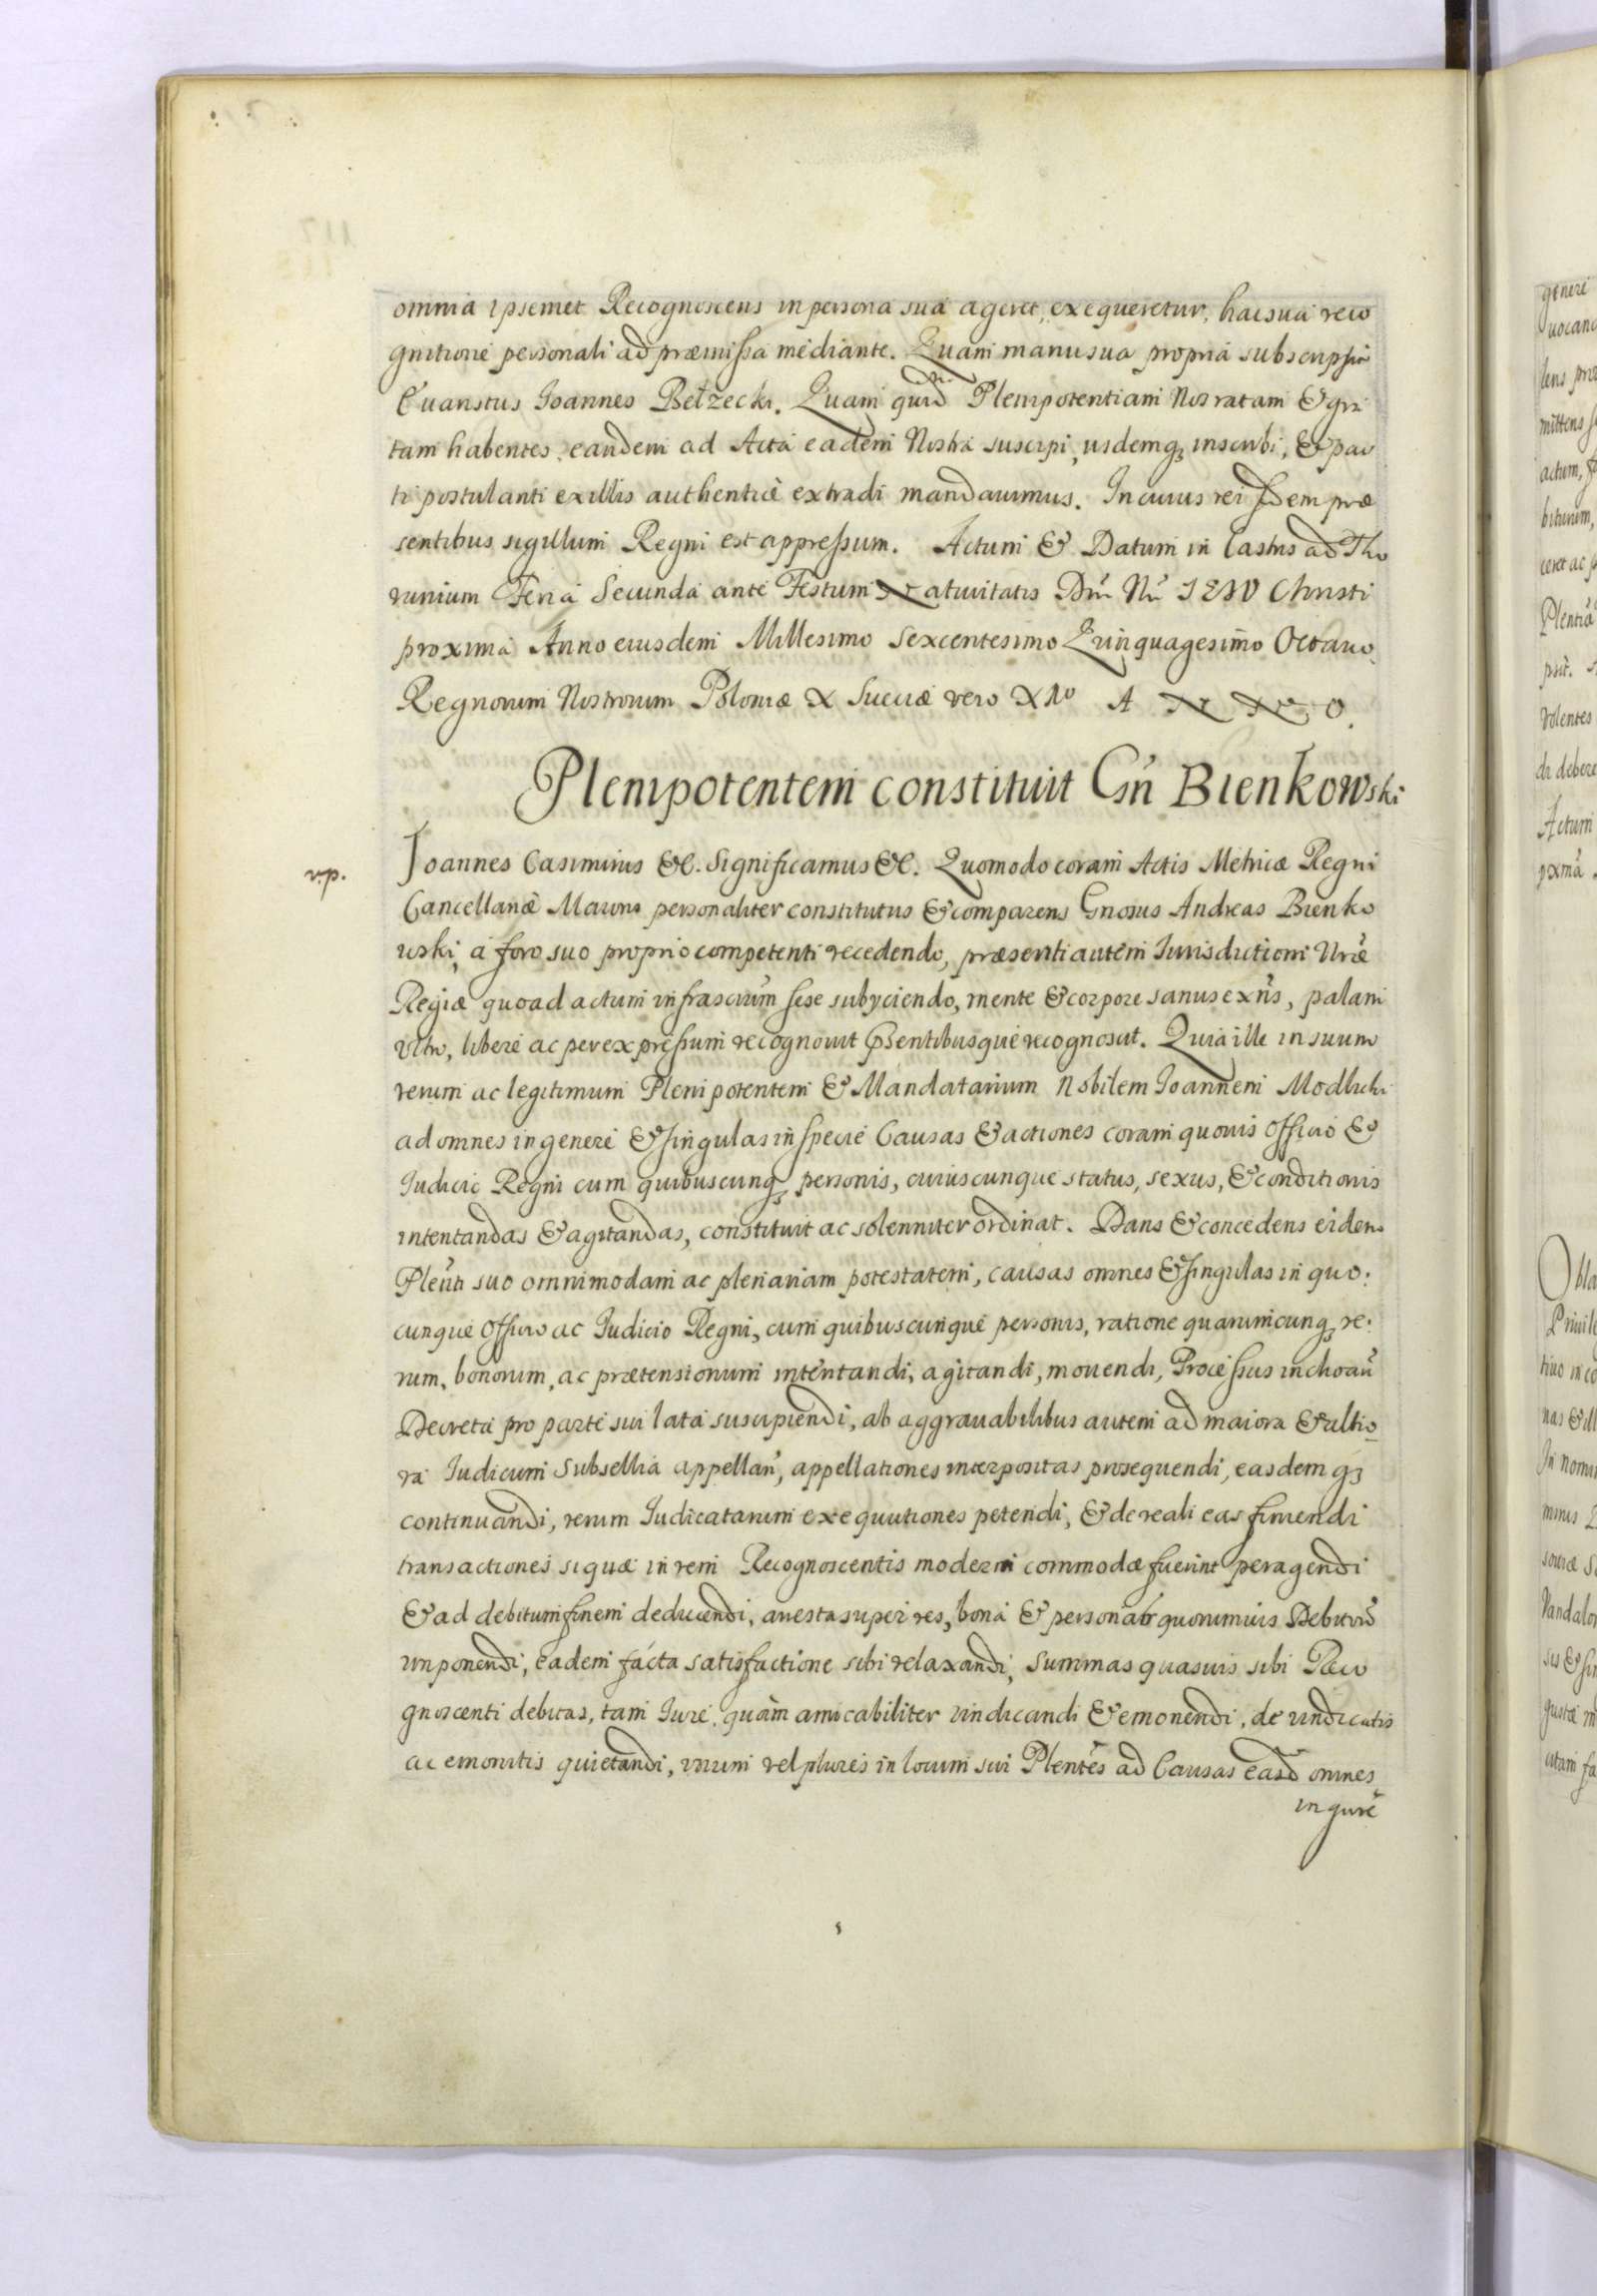 omnia ipsemet Recognoscens in persona sua ageret, exequeretur, hac sua reco
gnitione personali ad præmissa mediante. Quam manu sua propria subscripsit
Evaristus Joannes Bełzecki. Quam quid Plenipotentiam Nos ratam & gra
tam habentes, eandem ad Acta eadem Nostra suscipi, iisdemq3 inscribi, & par
ti postulanti ex illis authentice extradi mandavimus. In cuius rei fidem præ
sentibus sigillum Regni est appressum. Actum & Datum in Castris ad Tho
runium Feria Secunda ante Festum Nativitatis Dni Nri IESV Christi
proxima Anno eiusdem Millesimo Sexcentesimo Quinquagesimo Octavo.
Regnorum Nostrorum Poloniæ X Sueciæ vero XIº A N N O.
Plenipotentem constituit Gñ Bienkowski
v.p.
Joannes Casimirus &c. Significamus &c. Quomodo coram Actis Metricæ Regni
Cancellariæ Maioris personaliter constitutus & comparens Gnosus Andreas Bienko
wski, a foro suo proprio competenti recedendo, præsenti autem Jurisdictioni Nræ
Regiæ quoad actum infrascrum sese subyciendo, mente & corpore sanus exñs, palam
vltro, libere ac per expressum recognovit Psentibusque recognoscit. Quia ille in suum
verum ac legitimum Plenipotentem & Mandatarium Nobilem Joannem Modlicki
ad omnes in genere & singulas in specie Causas & actiones coram quovis Officio &
Judicio Regni cum quibuscunq3 personis, cuiuscunque status, sexus, & conditionis
intentandas & agitandas, constituit ac solenniter ordinat. Dans & concedens eidem
Plenti suo omnimodam ac plenariam potestatem, causas omnes & singulas in quo:
cunque Officio ac Judicio Regni, cum quibuscunque personis, ratione quarumcunq3 re:
rum, bonorum, ac prætensionum intentandi, agitandi, movendi, Processus inchoañ
Decreta pro parte sui lata suscipiendi, ab aggravabilibus autem ad maiora & altio
ra Judicum Subsellia appellañ, appellationes interpositas prosequendi, easdemq3
continuandi, rerum Judicatarum exequutiones petendi, & de reali eas finiendi
transactiones si quæ in rem Recognoscentis moderni commodæ fuerint peragendi
& ad debitum finem deducendi, aresta super res, bona & personas quorumvis Debitorũ
imponendi, eadem facta satisfactione sibi relaxandi, summas quasvis sibi Reco
gnoscenti debitas, tam Jure, quàm amicabiliter vindicandi & emonendi, de vindicatis
ac emonitis quietandi, vnum vel plures in locum sui Plentes ad Causas easd omnes
in gnre